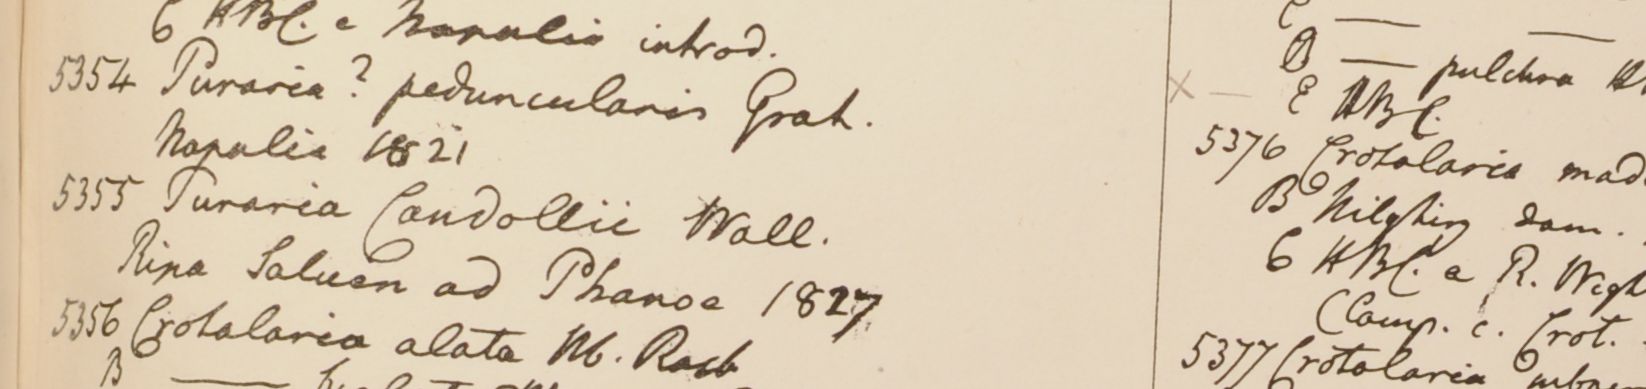 6 HBC. e Napalia introd.
5354 Puraria? peduncularis Grah.
Napalia 1821
5355 Puraria Candollii Wall.
Ripa Saluen ad Phanoe 1827
5356 Crotalaria alata Roxb
B —
C — —
B — pulchra
E HBC.
5376 Crotalaria mad
B Nilghiry dam.
6 HBC. e R. Wigh
(Comp. c. Crot.
5377 Crotalaria